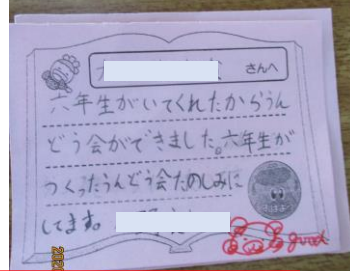 さんへ
六年生がいてくれたからうん
どう会ができました。六年生が
つくったうんどう会たのしみに
してます。
good